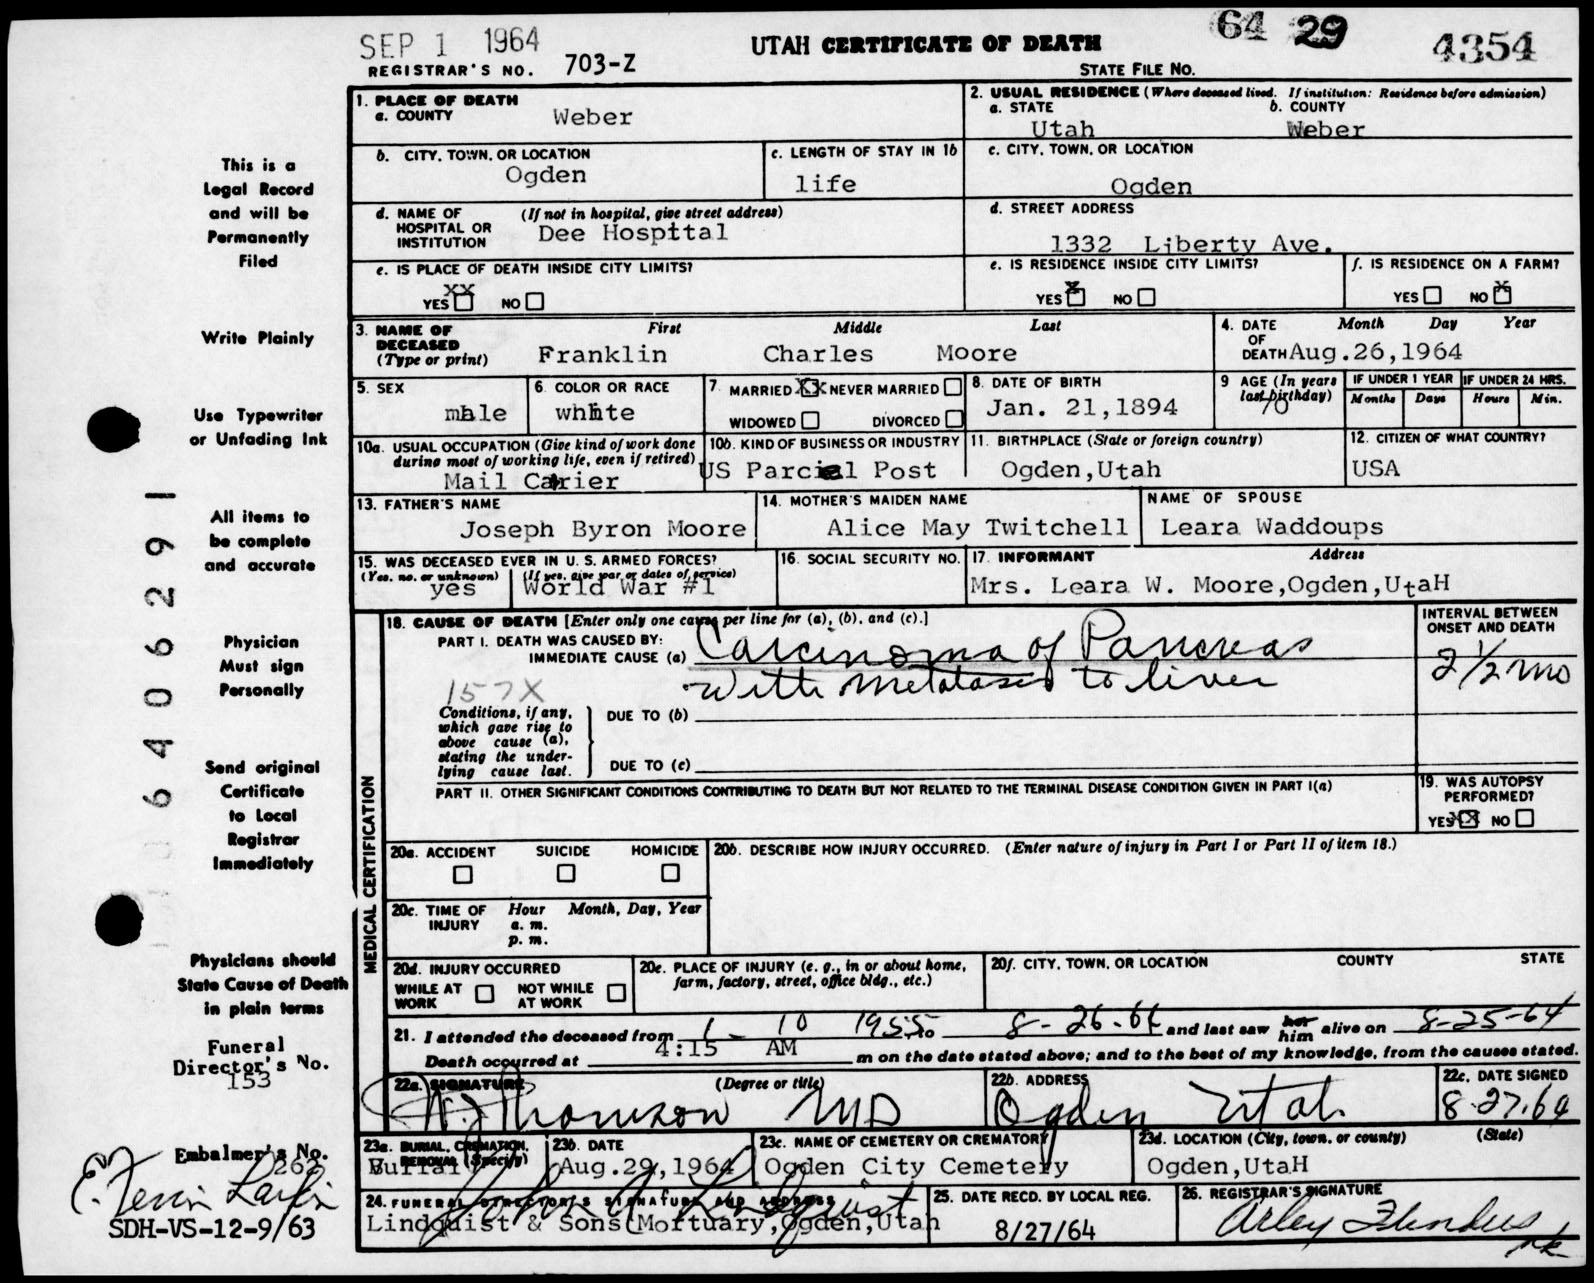 SEP 1 1964
REGISTRAR'S NO. 703-Z
UTAH CERTIFICATE OF DEATH
64 29 4354
STATE FILE NO.
This is a
Legal Record
and will be
Permanently
Filed
Write Plainly
Use Typewriter
or Unfading Ink
All items to
be complete
and accurate
Physician
Must sign
Personally
Send original
Certificate
to Local
Registrar
Immediately
Physicians should
State Cause of Death
in plain terms
Funeral
Director's No.
153
Embalmer's No.
262
SDH-VS-12-9/63
6406291
1. PLACE OF DEATH
a. COUNTY Weber
2. USUAL RESIDENCE (Where deceased lived. If institution: Residence before admission)
a. STATE b. COUNTY
Utah Weber
b. CITY, TOWN, OR LOCATION
Ogden
c. LENGTH OF STAY IN 1b
life
c. CITY, TOWN, OR LOCATION
Ogden
d. NAME OF HOSPITAL OR INSTITUTION (If not in hospital, give street address)
Dee Hospital
d. STREET ADDRESS
1332 Liberty Ave.
e. IS PLACE OF DEATH INSIDE CITY LIMITS?
YES XX NO
e. IS RESIDENCE INSIDE CITY LIMITS?
YES X NO
f. IS RESIDENCE ON A FARM?
YES NO X
3. NAME OF DECEASED (Type or print)
First Middle Last
Franklin Charles Moore
4. DATE OF DEATH Month Day Year
Aug.26,1964
5. SEX
male
6. COLOR OR RACE
white
7. MARRIED XX NEVER MARRIED
WIDOWED DIVORCED
8. DATE OF BIRTH
Jan. 21,1894
9 AGE (In years last birthday)
70
IF UNDER 1 YEAR IF UNDER 24 HRS.
Months Days Hours Min.
10a. USUAL OCCUPATION (Give kind of work done during most of working life, even if retired)
Mail Carrier
10b. KIND OF BUSINESS OR INDUSTRY
US Parcel Post
11. BIRTHPLACE (State or foreign country)
Ogden,Utah
12. CITIZEN OF WHAT COUNTRY?
USA
13. FATHER'S NAME
Joseph Byron Moore
14. MOTHER'S MAIDEN NAME
Alice May Twitchell
NAME OF SPOUSE
Leara Waddoups
15. WAS DECEASED EVER IN U. S. ARMED FORCES?
(Yes, no, or unknown) (If yes, give war or dates of service)
yes World War #1
16. SOCIAL SECURITY NO.
17. INFORMANT Address
Mrs. Leara W. Moore,Ogden,UtaH
MEDICAL CERTIFICATION
18. CAUSE OF DEATH [Enter only one cause per line for (a), (b), and (c).]
INTERVAL BETWEEN ONSET AND DEATH
PART I. DEATH WAS CAUSED BY:
IMMEDIATE CAUSE (a) Carcinoma of Pancreas
with metatases to liver
2 1/2 mo
157X
Conditions, if any, which gave rise to above cause (a), stating the underlying cause last.
DUE TO (b)
DUE TO (c)
PART II. OTHER SIGNIFICANT CONDITIONS CONTRIBUTING TO DEATH BUT NOT RELATED TO THE TERMINAL DISEASE CONDITION GIVEN IN PART I(a)
19. WAS AUTOPSY PERFORMED?
YES XX NO
20a. ACCIDENT SUICIDE HOMICIDE
20b. DESCRIBE HOW INJURY OCCURRED. (Enter nature of injury in Part I or Part II of item 18.)
20c. TIME OF INJURY Hour Month, Day, Year
a. m.
p. m.
20d. INJURY OCCURRED
WHILE AT WORK NOT WHILE AT WORK
20e. PLACE OF INJURY (e. g., in or about home, farm, factory, street, office bldg., etc.)
20f. CITY, TOWN, OR LOCATION COUNTY STATE
21. I attended the deceased from 1-10 1955 to 8-26-64 and last saw her him alive on 8-25-64
Death occurred at 4:15 AM m on the date stated above; and to the best of my knowledge, from the causes stated.
22a. SIGNATURE (Degree or title)
Thomson MD
22b. ADDRESS
Ogden Utah
22c. DATE SIGNED
8-27-64
23a. BURIAL, CREMATION, REMOVAL (Specify)
Burial
23b. DATE
Aug.29,1964
23c. NAME OF CEMETERY OR CREMATORY
Ogden City Cemetery
23d. LOCATION (City, town, or county) (State)
Ogden,UtaH
24. FUNERAL DIRECTOR'S SIGNATURE AND ADDRESS
John A Lindquist
Lindquist & Sons Mortuary,Ogden,Utah
25. DATE RECD. BY LOCAL REG.
8/27/64
26. REGISTRAR'S SIGNATURE
Arley Flinders